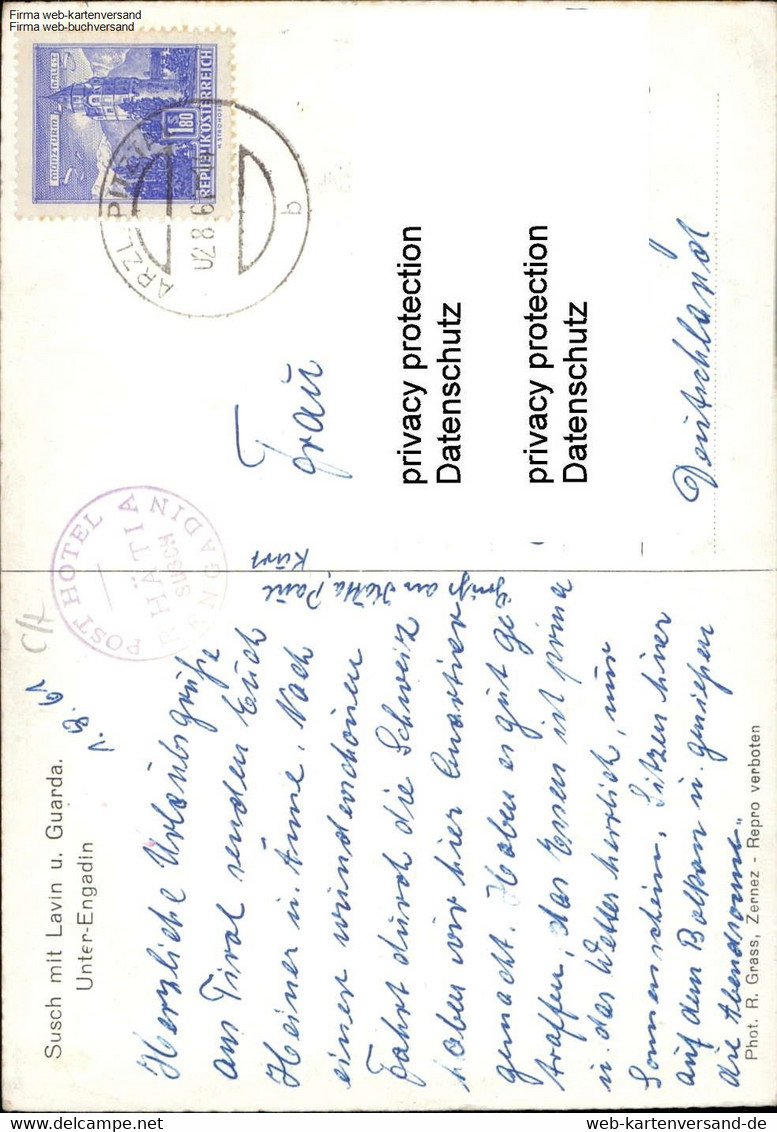 Firma web-kartenversand
Firma web-buchversand
Susch mit Lavin u. Guarda.
Unter-Engadin
1.8.61
Herzliche Urlaubsgrüße
aus Tirol senden Euch
Heiner u. Änne. Nach
einer wunderschönen
Fahrt durch die Schweiz
haben wir hier Quartier
gemacht. Haben es gut ge
troffen, das Essen ist prima
u. das Wetter herrlich, nur
Sonnenschein. Sitzen hier
auf dem Balkon u. genießen
die Abendsonne"
Gruß an Paul
Kurt
Phot. R. Grass, Zernez - Repro verboten
POSTHOTEL
RHÄTIA
SUSCH
ENGADIN
MÜNZTURM HALL I. T.
S 1.80
REPUBLIK ÖSTERREICH
ARZL PITZTAL
02.8.61
b
Frau
privacy protection
Datenschutz
privacy protection
Datenschutz
Deutschland
web-kartenversand-de